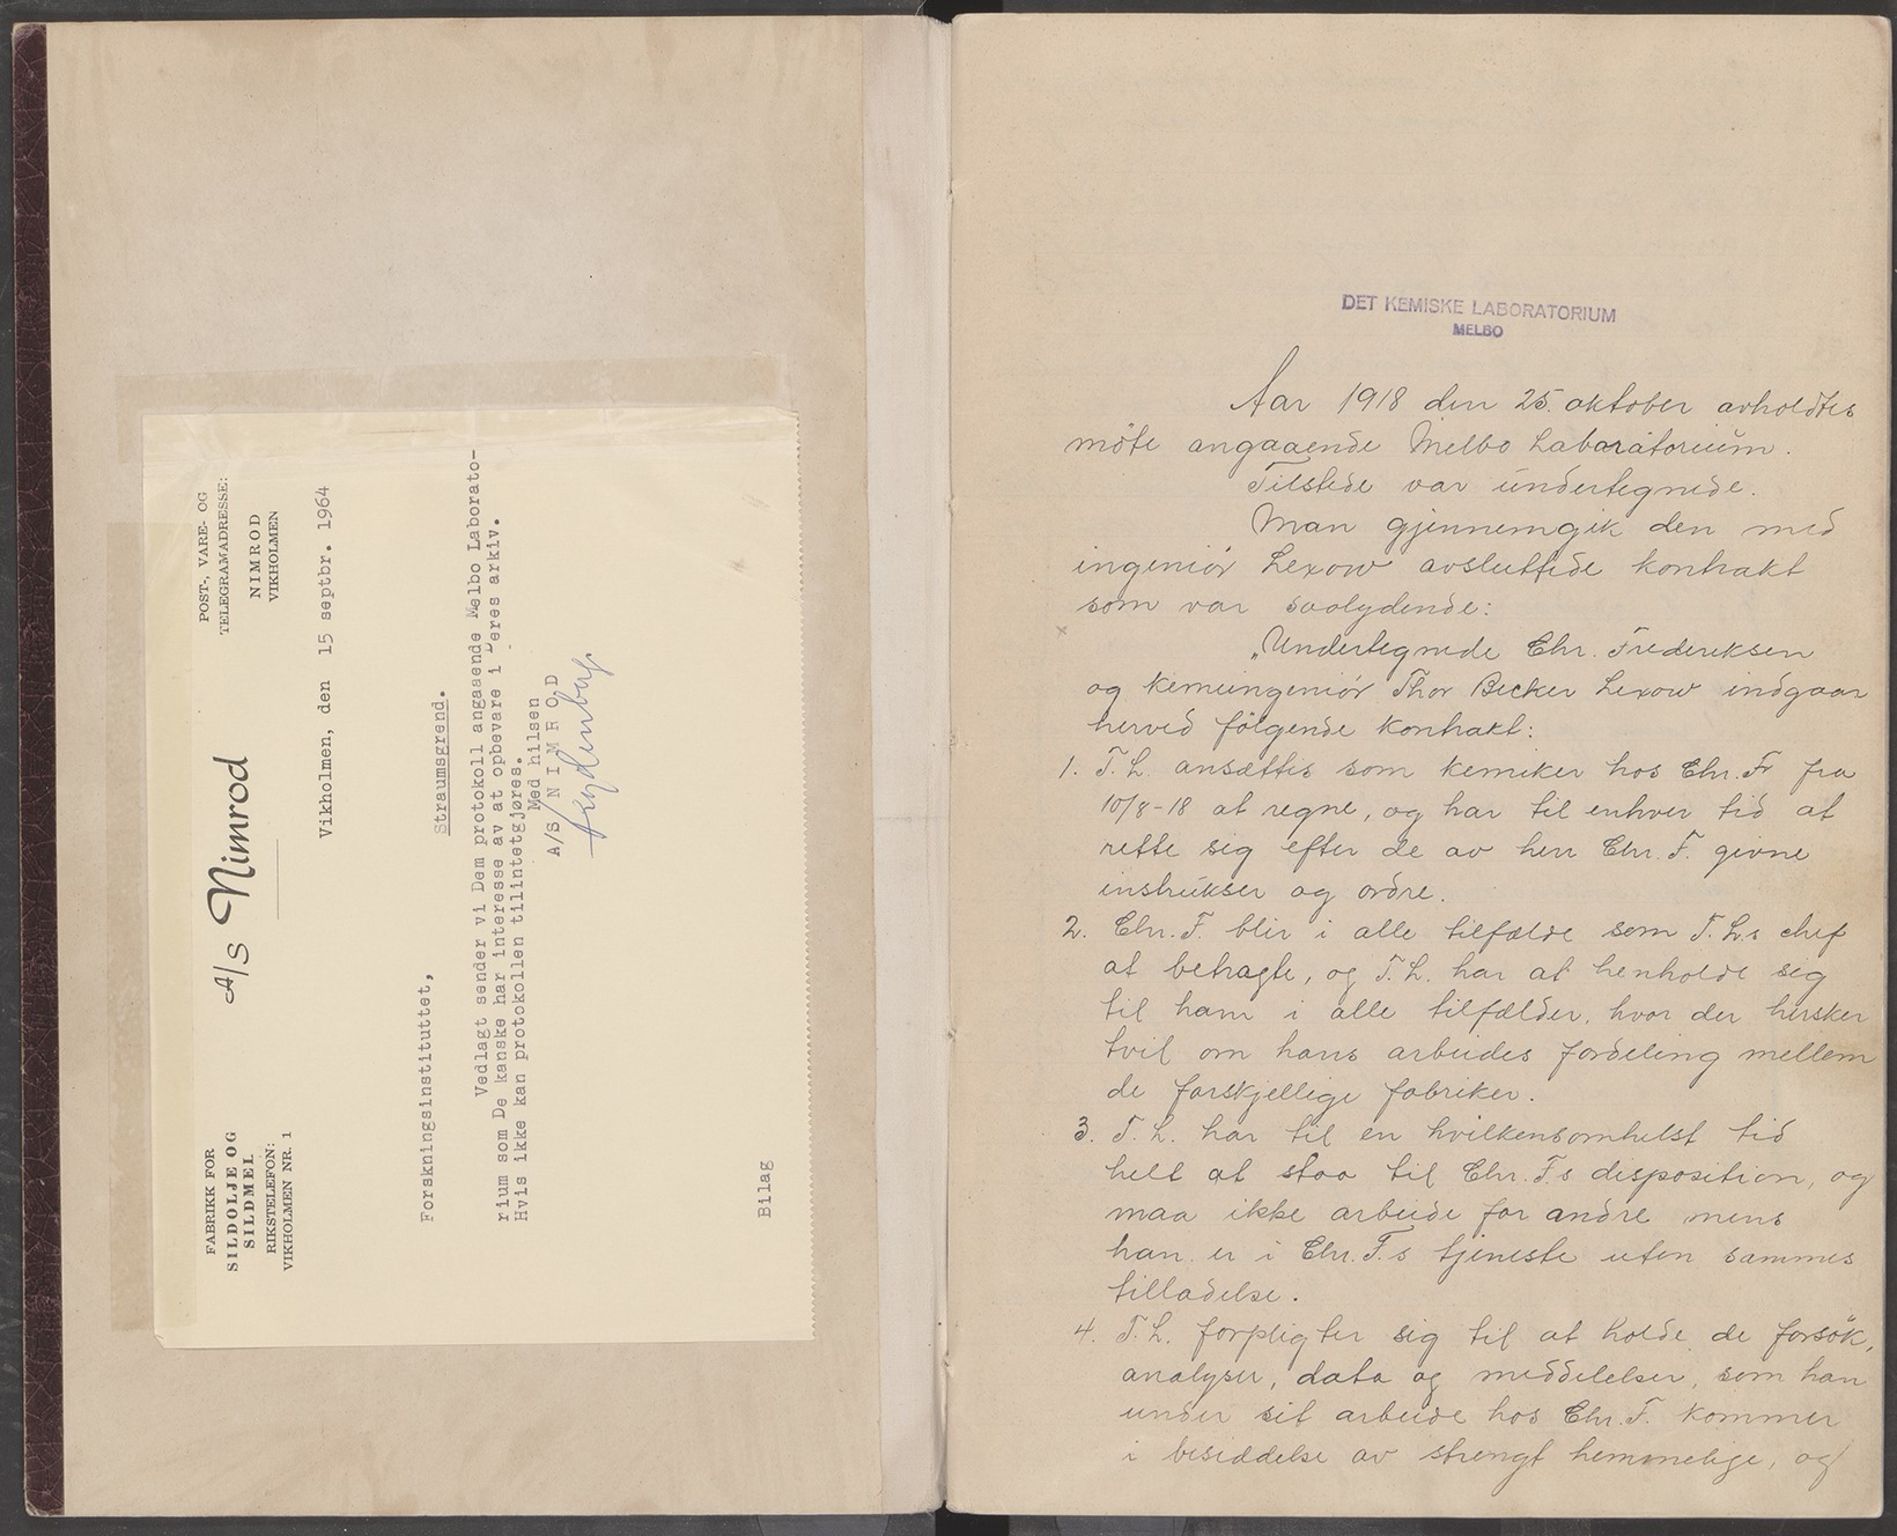 FABRIKK FOR
SILDOLJE OG
SILDMEL
RIKSTELEFON:
VIKHOLMEN NR. 1
A/S Nimrod
POST-, VARE- OG
TELEGRAMADRESSE:
NIMROD
VIKHOLMEN
Vikholmen, den 15 septbr. 1964
Forskningsinstituttet,
Straumsgrend.
Vedlagt sender vi Dem protokoll angaaende Melbo Laborato-
rium som De kanske har interesse av at opbevare i Deres arkiv.
Hvis ikke kan protokollen tilintetgjøres.
Med hilsen
A/S NIMROD
Bilag
DET KEMISKE LABORATORIUM
MELBO
Aar 1918 den 25. oktober avholdtes
möte angaaende Melbo Laboratorium.
Tilstede var undertegnede.
Man gjennemgik den med
ingeniör Lexow avsluttede kontrakt
som var saalydende:
„Undertegnede Chr. Frederiksen
og kemiingeniör Thor Becker Lexow indgaar
herved fölgende kontrakt:
1. T. L. ansættes som kemiker hos Chr. Fr fra
10/8-18 at regne, og har til enhver tid at
rette sig efter de av herr Chr. F. givne
instrukser og ordre.
2. Chr. F. blir i alle tilfælde som T. L.s chef
at betragte, og T. L. har at henholde sig
til ham i alle tilfælder, hvor der hersker
tvil om hans arbeides fordeling mellem
de forskjellige fabriker.
3. T. L. har til en hvilkensomhelst tid
helt at staa til Chr. F.s disposition, og
maa ikke arbeide for andre mens
han er i Chr. F.s tjeneste uten sammes
tilladelse.
4. T. L. forpligter sig til at holde de forsök,
analyser, data og meddelelser, som han
under sit arbeide hos Chr. F. kommer
i besiddelse av strengt hemmelige, og